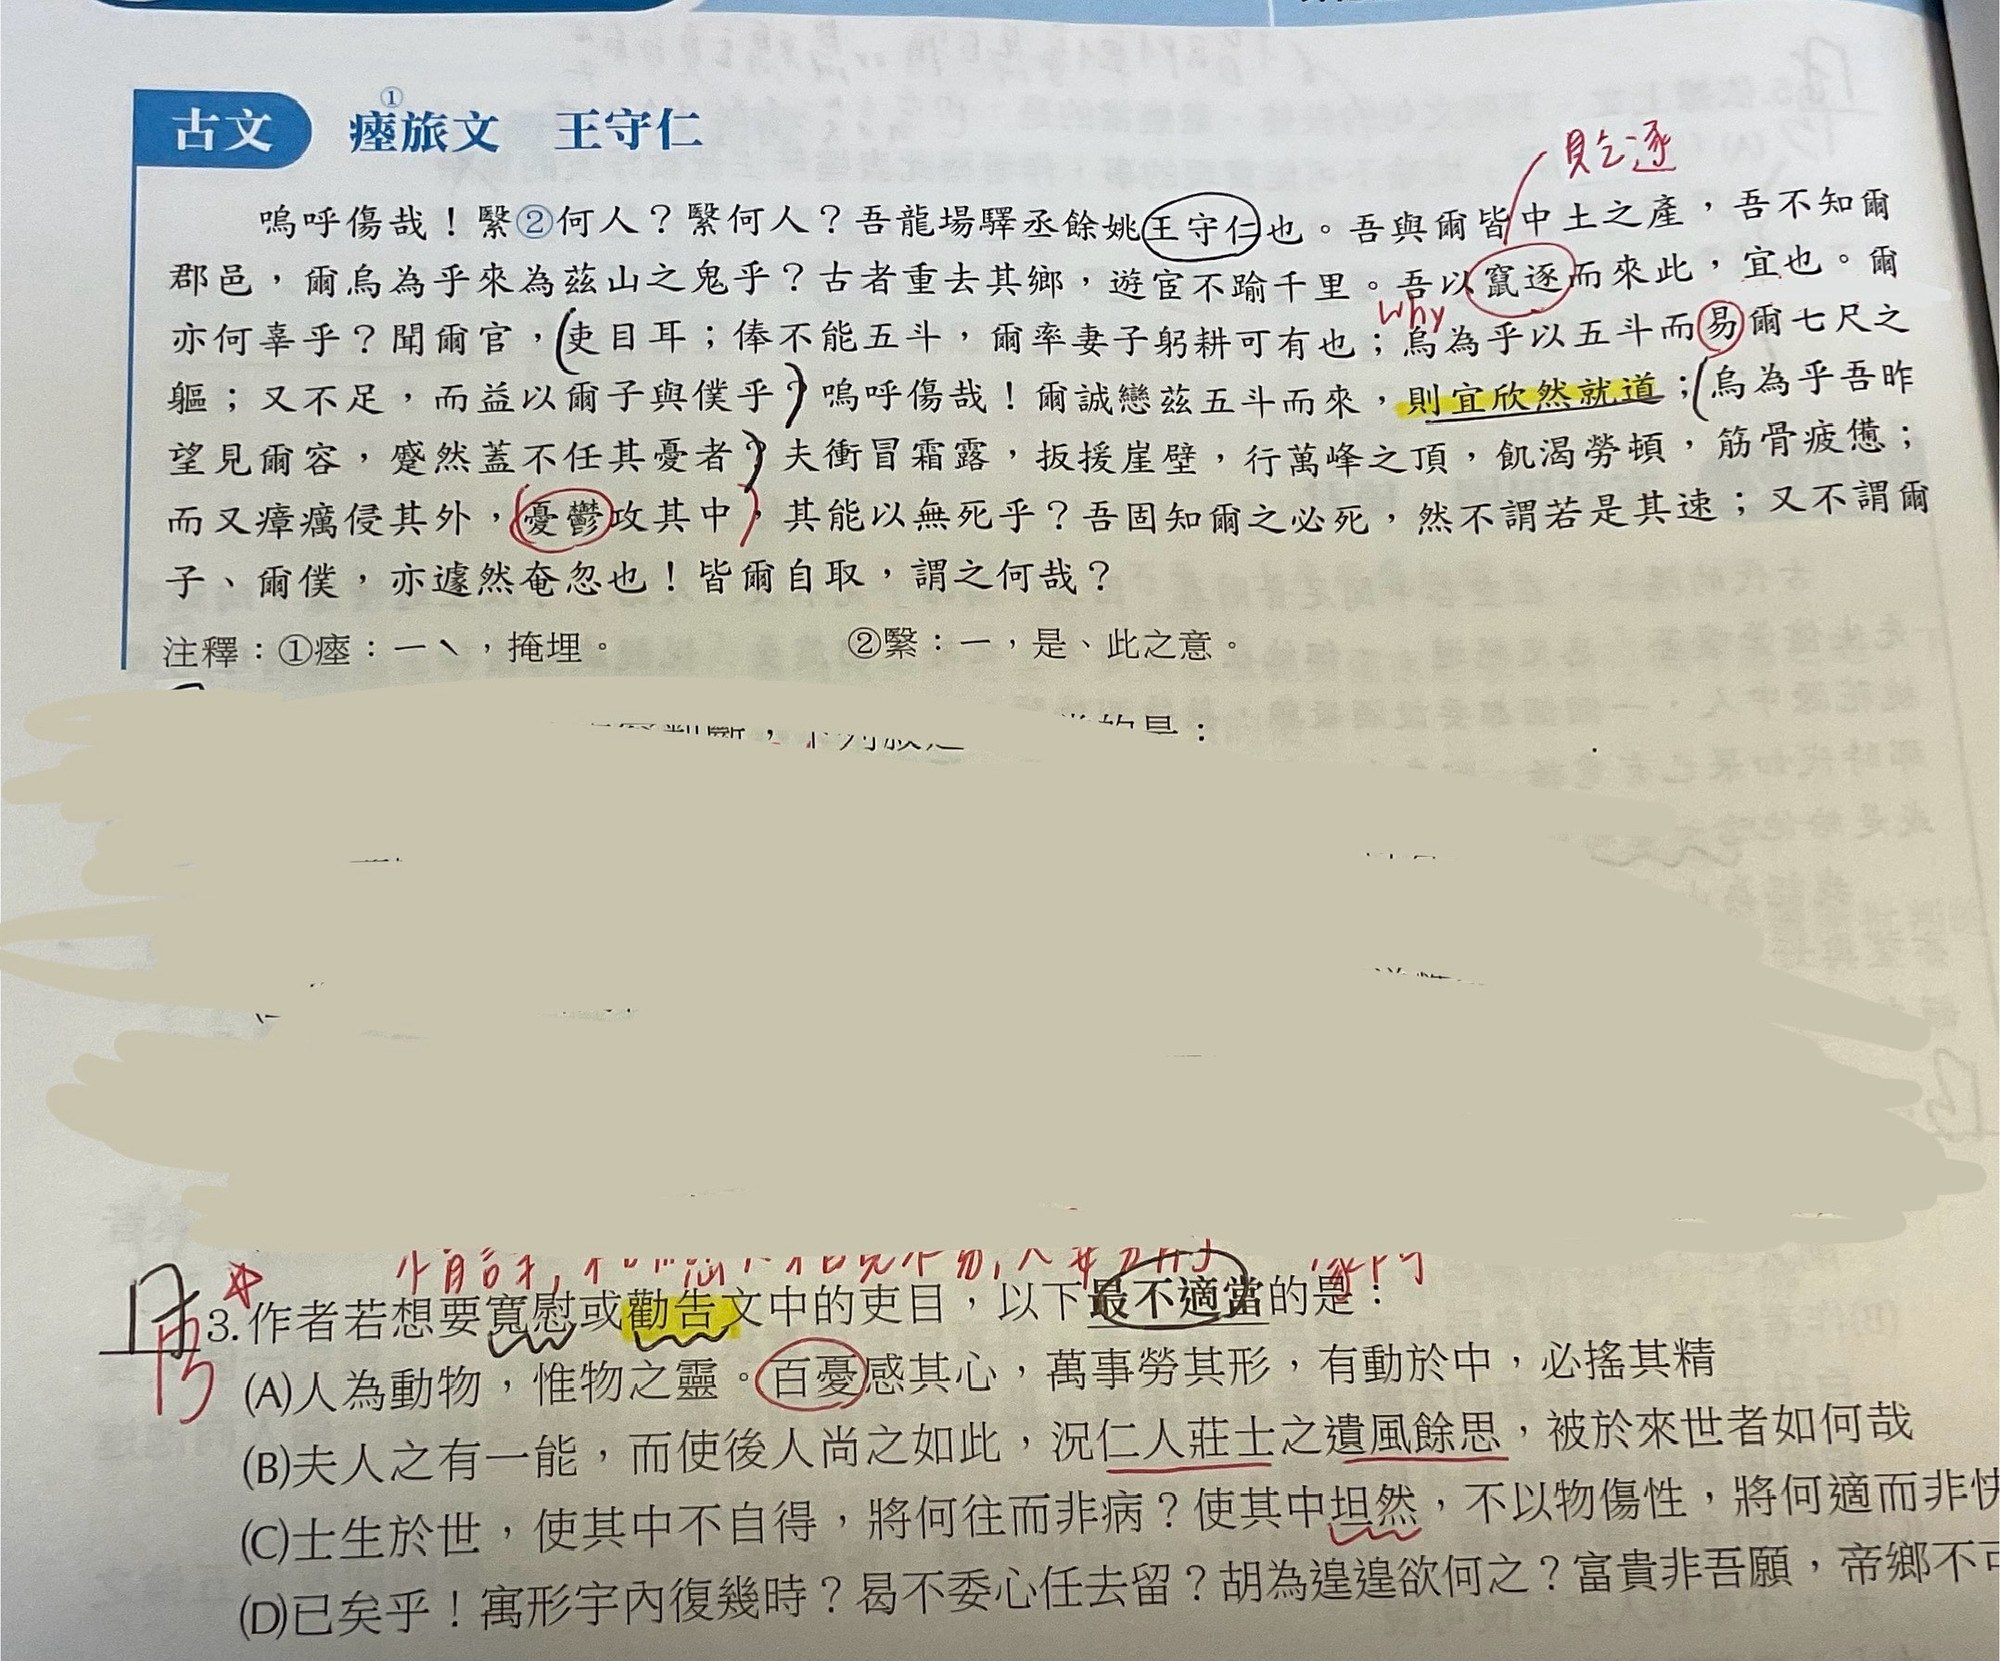 古文 瘞①旅文 王守仁
貶之逐
嗚呼傷哉！繄②何人？繄何人？吾龍場驛丞餘姚王守仁也。吾與爾皆中土之產，吾不知爾
郡邑，爾烏為乎來為茲山之鬼乎？古者重去其鄉，遊宦不踰千里。吾以竄逐而來此，宜也。爾
why
亦何辜乎？聞爾官，吏目耳；俸不能五斗，爾率妻子躬耕可有也；烏為乎以五斗而易爾七尺之
軀；又不足，而益以爾子與僕乎？嗚呼傷哉！爾誠戀茲五斗而來，則宜欣然就道；烏為乎吾昨
望見爾容，蹙然蓋不任其憂者？夫衝冒霜露，扳援崖壁，行萬峰之頂，飢渴勞頓，筋骨疲憊；
而又瘴癘侵其外，憂鬱攻其中，其能以無死乎？吾固知爾之必死，然不謂若是其速；又不謂爾
子、爾僕，亦遽然奄忽也！皆爾自取，謂之何哉？
注釋：①瘞：ㄧˋ，掩埋。 ②繄：ㄧ，是、此之意。
3.作者若想要寬慰或勸告文中的吏目，以下最不適當的是：
B
(A)人為動物，惟物之靈。百憂感其心，萬事勞其形，有動於中，必搖其精
(B)夫人之有一能，而使後人尚之如此，況仁人莊士之遺風餘思，被於來世者如何哉
(C)士生於世，使其中不自得，將何往而非病？使其中坦然，不以物傷性，將何適而非快
(D)已矣乎！寓形宇內復幾時？曷不委心任去留？胡為遑遑欲何之？富貴非吾願，帝鄉不可